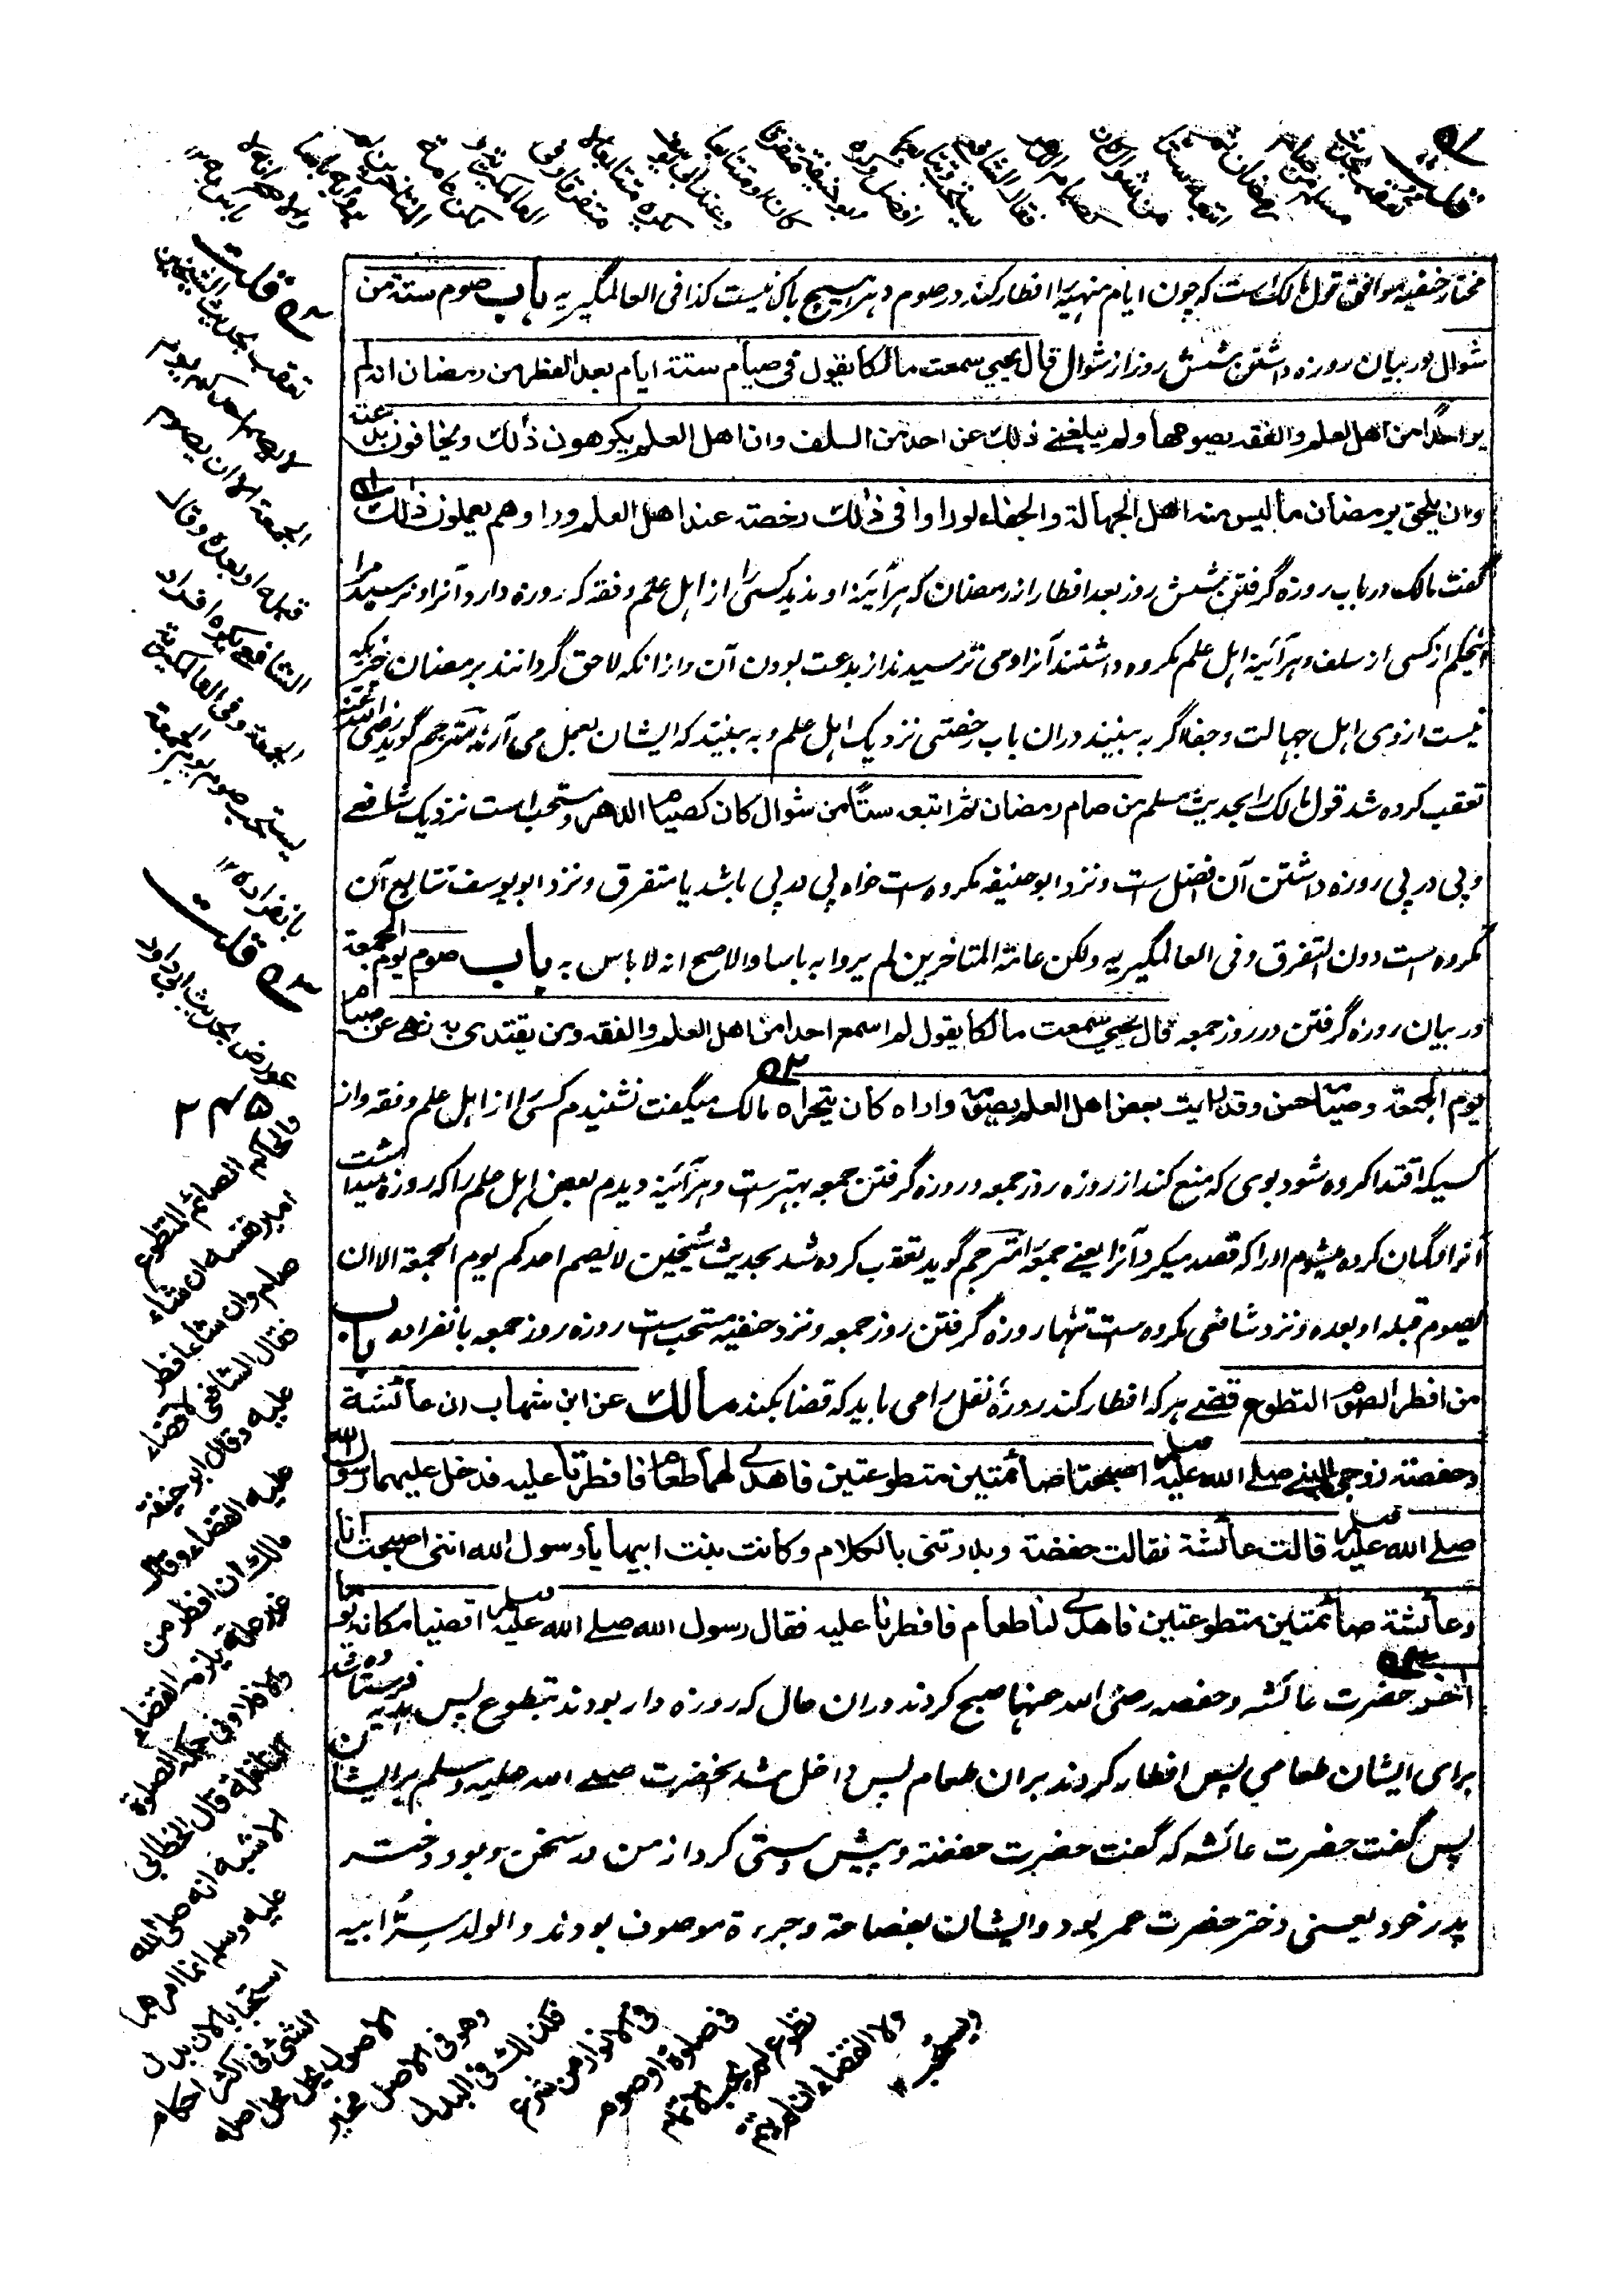 مختار حنفیه موافق قول مالک است که چون ایام منهیه را افطار کند در صوم دهر هیچ باک نیست کذا فی العالمگیریه باب صوم ستة من
شوال در بیان روزه داشتن شش روز از شوال قال یحیی سمعت مالکا یقول فی صیام ستة ایام بعد الفطر من رمضان انه لم
یر احدا من اهل العلم والفقه یصومها ولم یبلغنی ذلك عن احد من السلف وان اهل العلم یکرهون ذلك ویخافون بدعته
وان یلحق برمضان ما لیس منه اهل الجهالة والجفاء لو راوا فی ذلك رخصته عند اهل العلم وراوهم یعملون ذلك ۵۱
گفت مالک در باب روزه گرفتن شش روز بعد افطار از رمضان که هر آئینه او ندید کسی را از اهل علم وفقه که روزه دارد آنرا ونرسید مرا
اینحکم از کسی از سلف وهر آئینه اهل علم مکروه داشتند آنرا ومی ترسیدند از بدعت بودن آن واز انکه لاحق گردانند برمضان چیزیکه
نیست ازوی اهل جهالت وجفا اگر به بینند دران باب رخصتی نزدیک اهل علم وبه بینند که ایشان بعمل می آرند مترجم گوید رضی الله عنه
تعقب کرده شد قول مالک را بحدیث مسلم من صام رمضان ثم اتبعه ستا من شوال کان کصیام الدهر ومستحب است نزدیک شافعی
وپی در پی روزه داشتن آن افضل ست ونزد ابوحنیفه مکروه ست خواه پی در پی باشد یا متفرق ونزد ابویوسف تتابع آن
مکروه ست دون التفرق وفی العالمگیریه ولکن عامة المتاخرین لم یروا به باسا والاصح انه لا باس به باب صوم یوم الجمعة
در بیان روزه گرفتن در روز جمعه قال یحیی سمعت مالکا یقول لم اسمع احدا من اهل العلم والفقه ومن یقتدی به نهی عن صیام
یوم الجمعة وصیامه حسن وقد رایت بعض اهل العلم یصومه واراه کان یتحراه ۵۲ مالک میگفت نشنیدم کسی را از اهل علم وفقه واز
کسیکه اقتدا کرده شود بوی که منع کند از روزه روز جمعه وروزه گرفتن جمعه بهتر ست وهر آئینه دیدم بعض اهل علم را که روزه میداشت
آنرا وگمان کرده میشوم اورا که قصد میکرد آنرا یعنی جمعه را مترجم گوید تعقب کرده شد بحدیث شیخین لا یصم احدکم یوم الجمعة الا ان
یصوم قبله او بعده ونزد شافعی مکروه ست تنها روزه گرفتن روز جمعه ونزد حنفیه مستحب است روزه روز جمعه بانفراده باب
من افطر الصوم التطوع قضی هر که افطار کند روزهٔ نفل را می باید که قضا بکند مالك عن ابن شهاب ان عائشة
وحفصته زوجی النبی صلی الله علیه وسلم اصبحتا صائمتین متطوعتین فاهدی لهما طعام فافطرتا علیه فدخل علیهما رسول الله
صلی الله علیه وسلم قالت عائشة فقالت حفصة وبدرتنی بالکلام وکانت بنت ابیها یا رسول الله انی اصبحت انا
وعائشة صائمتین متطوعتین فاهدی لنا طعام فافطرنا علیه فقال رسول الله صلی الله علیه وسلم اقضیا مکانه یوما
اخر ۵۳ حضرت عائشه وحفصه رضی الله عنها صبح کردند دران حال که روزه دار بودند بتطوع پس هدیه فرستاده شد
برای ایشان طعامی پس افطار کردند بران طعام پس داخل شد آنحضرت صلی الله علیه وسلم بر ایشان
پس گفت حضرت عائشه که گفت حضرت حفصة وپیش دستی کرد از من در سخن وبود دختر
پدر خود یعنی دختر حضرت عمر بود وایشان بفصاحة وجرءة موصوف بودند والولد سرّ ابیه
۵۱
قلت
تعقب بحدیث
مسلم من صام
رمضان ثم
اتبعه ستا
من شوال کان
کصیام الدهر
فقال الشافعی
یستحب وتتابعها
افضل وکره
ابو حنیفة متفرقا
کان او متتابعا
وعند ابی یوسف
یکره متتابعا لا
متفرقا وفی
العالمگیریة
لکن عامة
المتاخرین لم
یروا به باسا
والاصح انه لا
باس به ۱۲
۵۲ قلت
تعقب بحدیث الشیخین
لا یصم احدکم یوم
الجمعة الا ان یصوم
قبله او بعده وقال
الشافعی یکره افراد
الجمعة وفی العالمگیریة
یستحب صوم یوم الجمعة
بانفراده ۱۲
۵۳ قلت
عورض بحدیث ابی داود
والحاکم الصائم المتطوع
امیر نفسه ان شاء
صام وان شاء افطر
فقال الشافعی لا قضاء
علیه وقال ابو حنیفة
علیه القضاء وقال
مالك ان افطر من
غیر علة یلزمه القضاء
والا فلا وفی حکمه الصلوة
النافلة قال الخطابی
الاشبه انه صلی الله
علیه وسلم انما امرهما
استحبابا لان بدل
الشئ فی اکثر احکام
الاصول یحل محل اصله
وهو فی الاصل مخیر
فکذلك فی البدل
فی الانوار من شرع
فی صلوة او صوم
تطوع لم یجب الاتمام
ولا القضاء ان لم یتم
ویستحب ۱۲